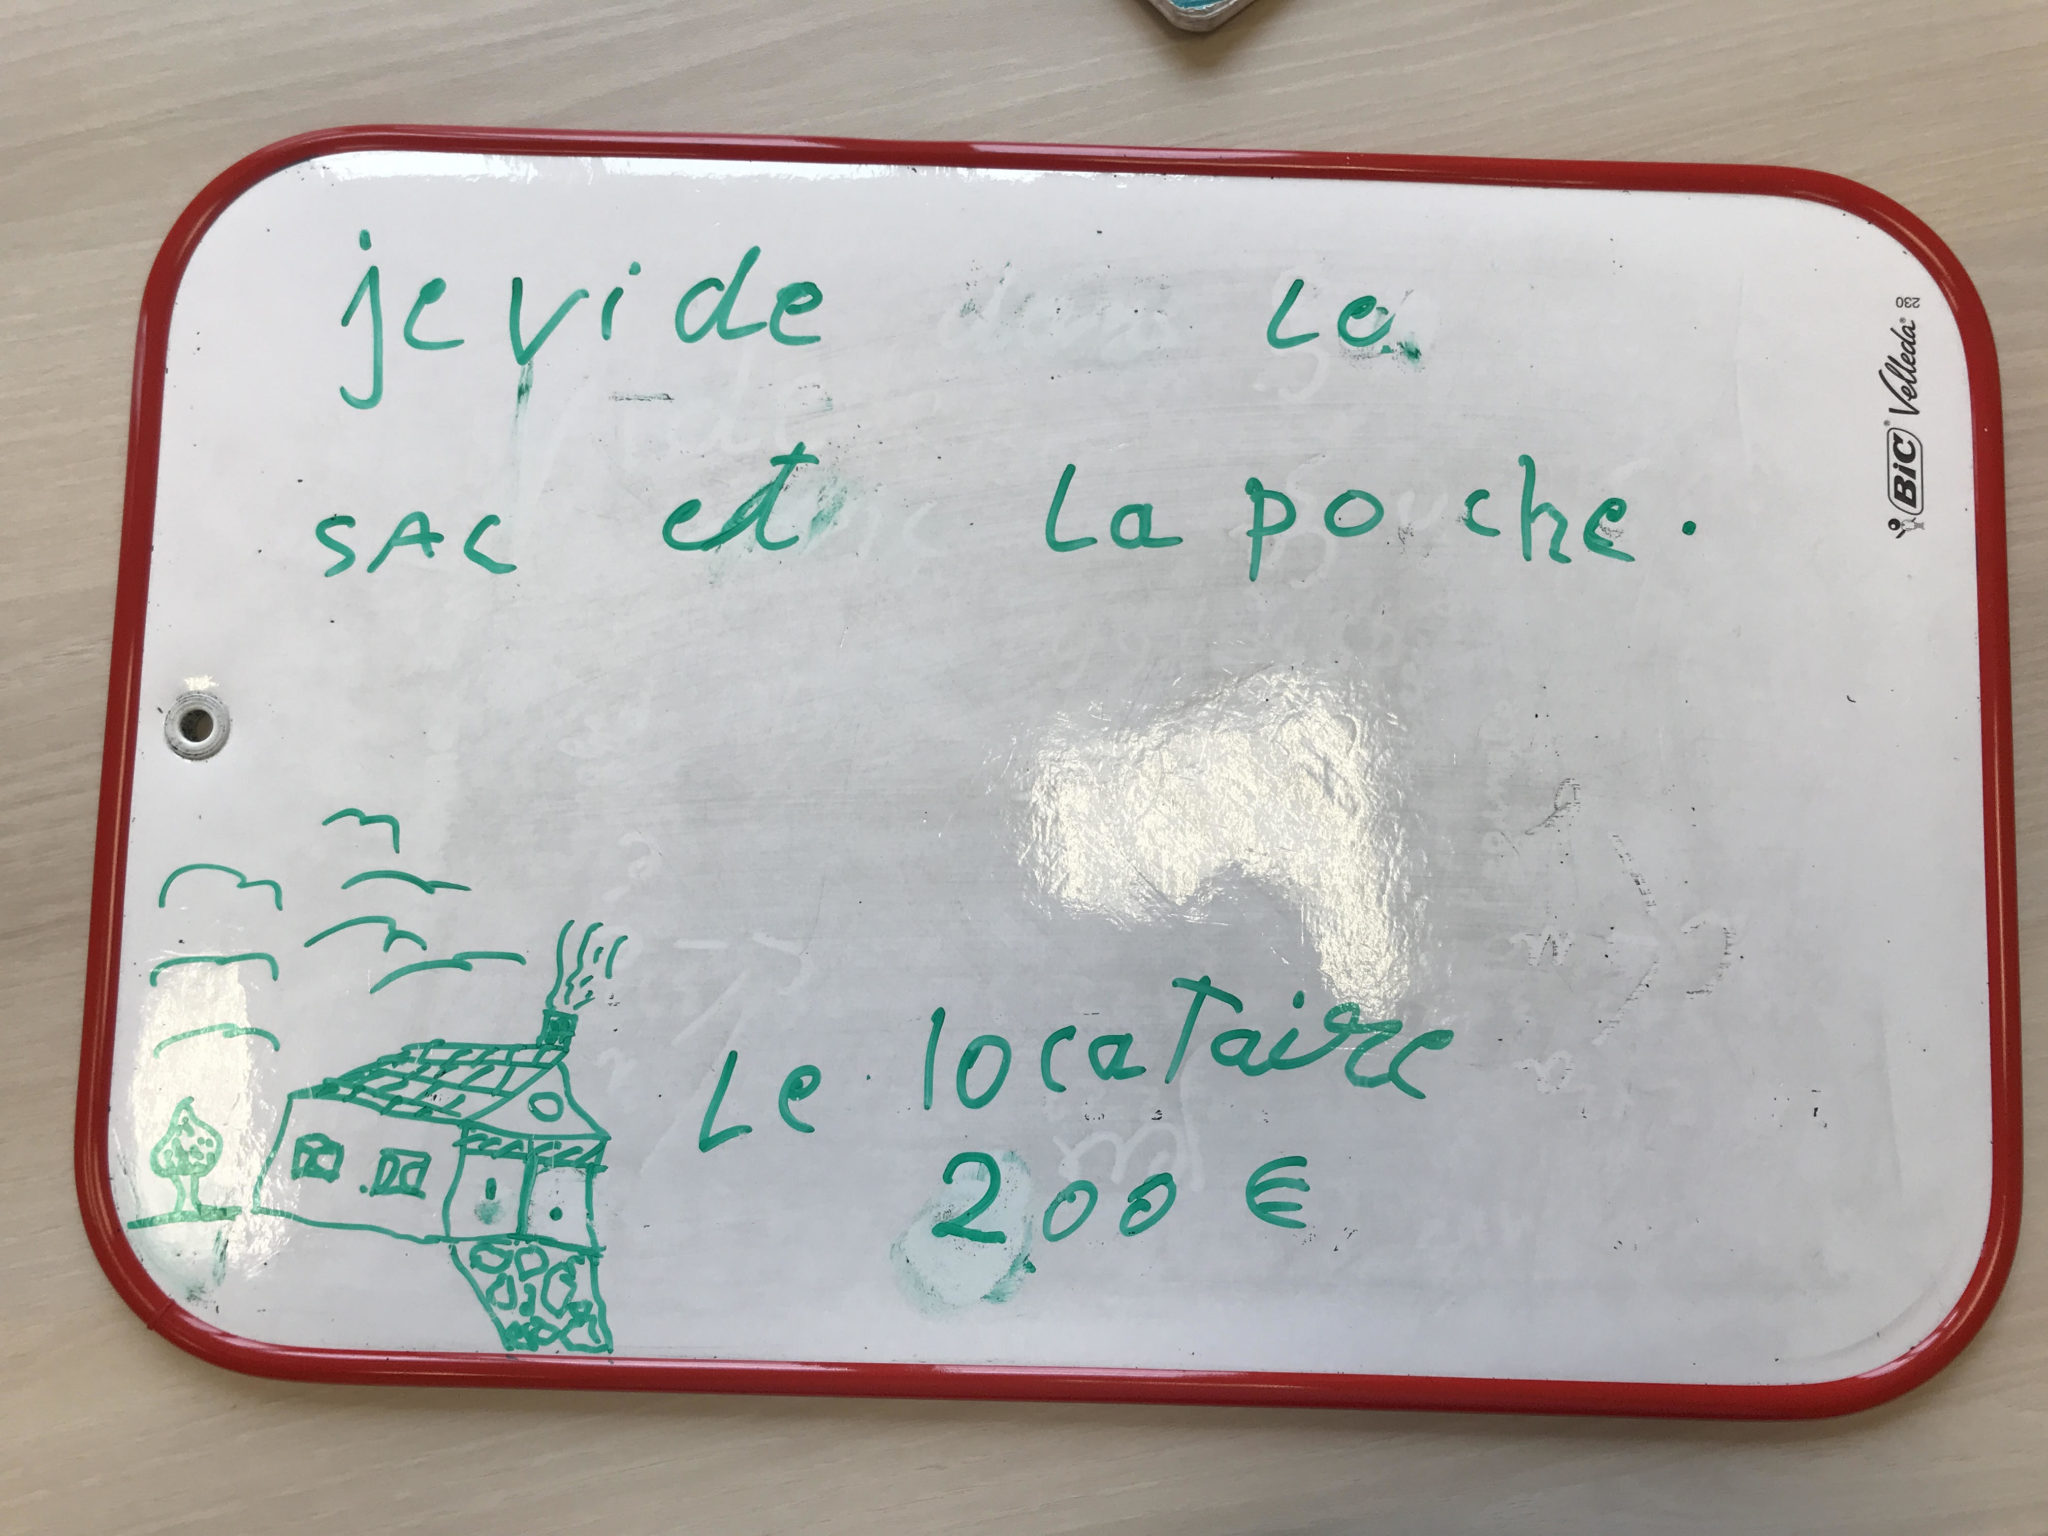 je vide le
sac et la poche.
Le locataire
200 €
BiC® Velleda® 230